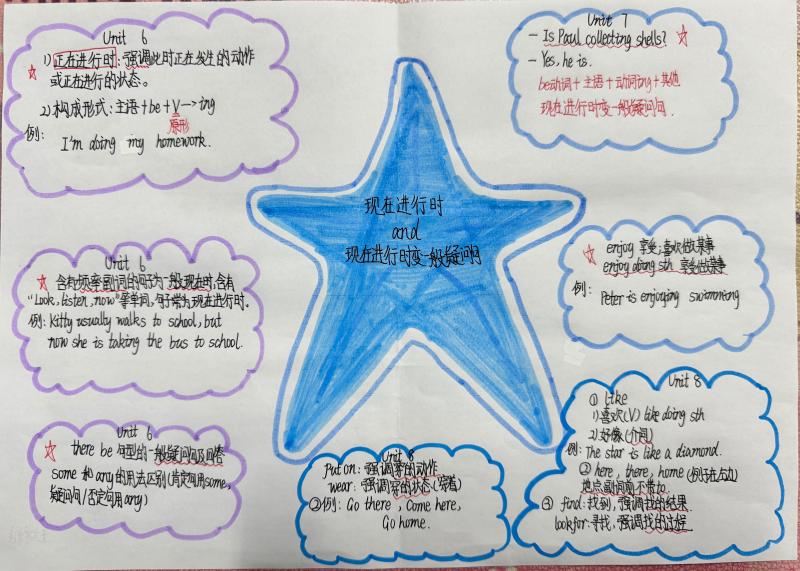 Unit 6
1) 正在进行时:强调此时正在发生的动作
或正在进行的状态。
2) 构成形式:主语+be+V→ing
原形
例:
I'm doing my homework.
Unit 7
- Is Paul collecting shells?
- Yes, he is.
be动词+主语+动词ing+其他
现在进行时变一般疑问句.
现在进行时
and
现在进行时变一般疑问句
Unit 6
含有频率副词的句子为一般现在时,含有
"Look, listen, now"等单词,句子常为现在进行时.
例: Kitty usually walks to school, but
now she is taking the bus to school.
enjoy 享受;喜欢做某事
enjoy doing sth 享受做某事
例:
Peter is enjoying swimming
Unit 6
there be 句型的一般疑问句及回答
some 和 any的用法区别(肯定句用some,
疑问句/否定句用any)
Unit 8
put on: 强调穿的动作
wear: 强调穿的状态(穿着)
②例: Go there, Come here,
Go home.
Unit 8
① Like
1)喜欢(V) like doing sth
2)好像(介词)
例: The star is like a diamond.
② here, there, home (例子在左边)
地点副词前不带to.
③ find: 找到,强调找的结果.
look for: 寻找,强调找的过程